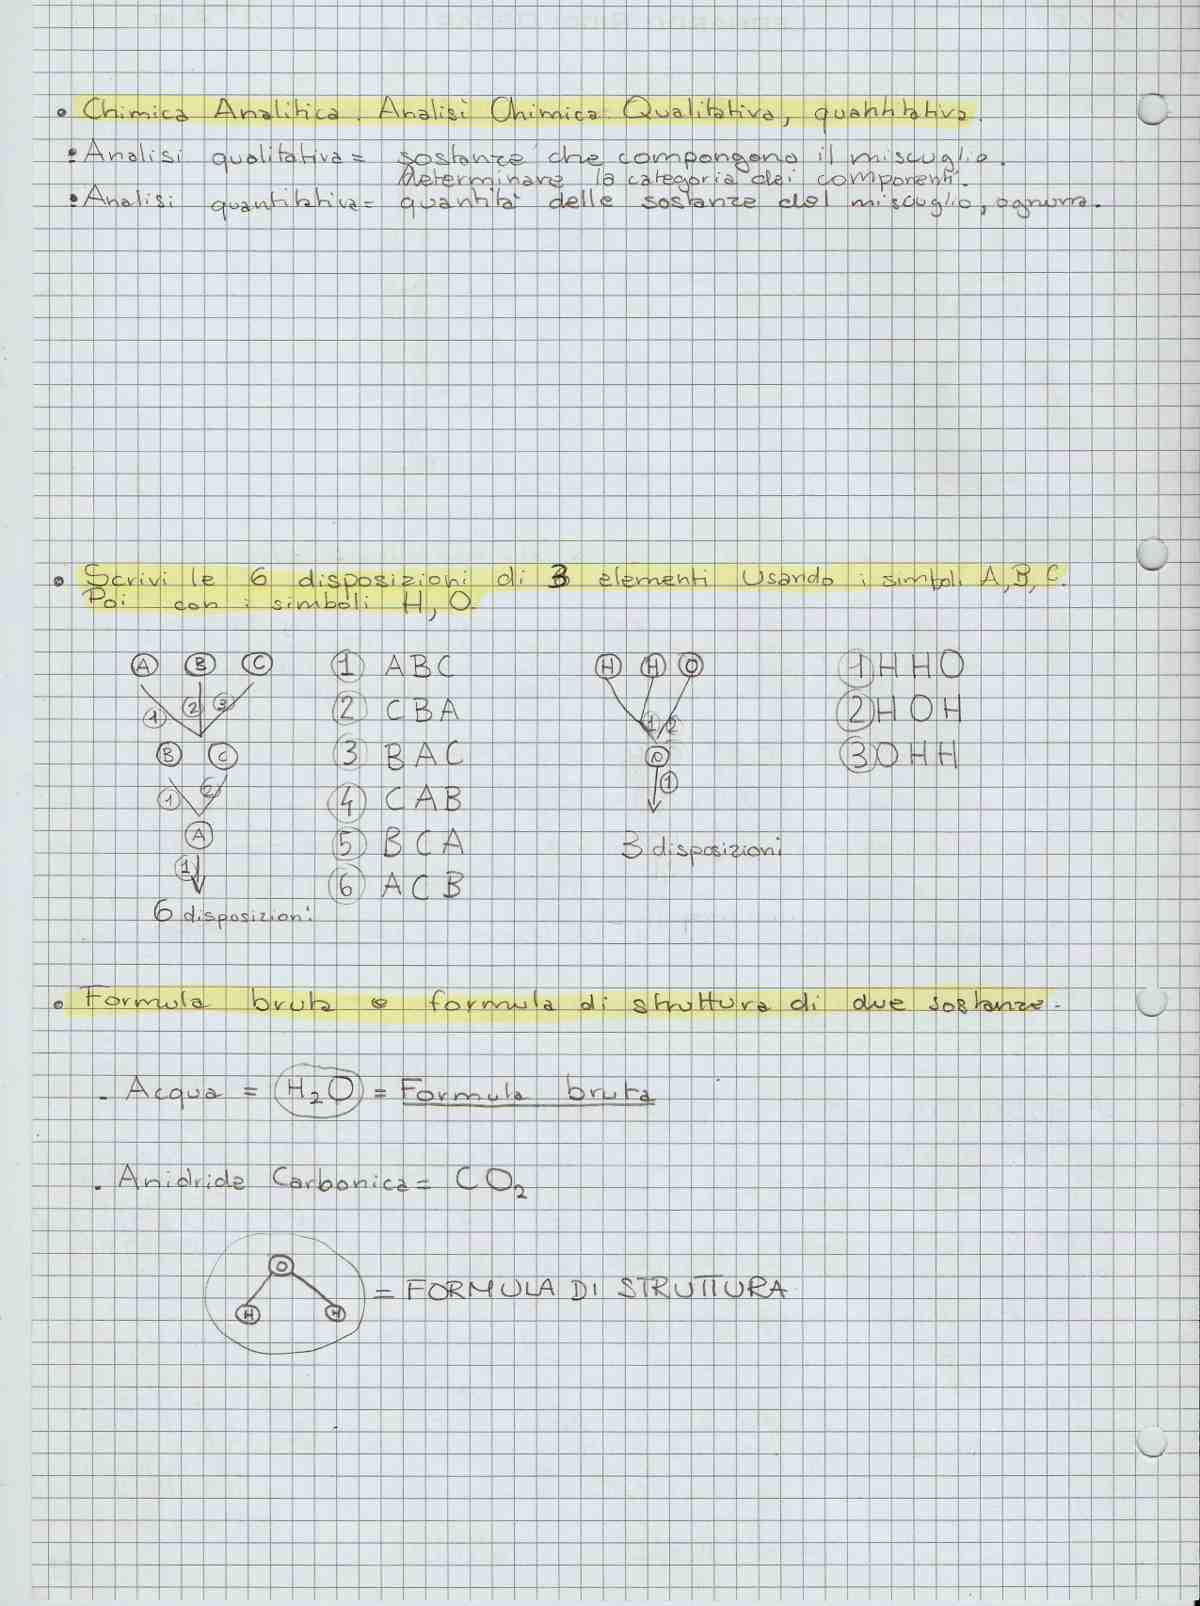 • Chimica Analitica. Analisi Chimica Qualitativa, quantitativa.
• Analisi qualitativa = sostanze che compongono il miscuglio.
Determinare la categoria dei componenti.
• Analisi quantitativa = quantità delle sostanze del miscuglio, ognuna.
• Scrivi le 6 disposizioni di 3 elementi Usando i simboli A, B, C.
Poi con i simboli H, O
A B C
1 2 3
B C
1 2
A
1
6 disposizioni
1 ABC
2 CBA
3 BAC
4 CAB
5 BCA
6 ACB
H H O
1 2
O
1
3 disposizioni
1 HHO
2 HOH
3 OHH
• Formula bruta e formula di struttura di due sostanze.
- Acqua = H₂O = Formula bruta
- Anidride Carbonica = CO₂
O
H H
= FORMULA DI STRUTTURA